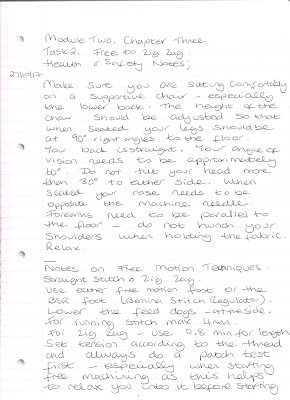 Module Two, Chapter Three
Task 2. Free to Zig Zag.
Health & Safety Notes;
27/10/17
Make sure you are sitting comfortably
on a supportive chair - especially
the lower back. The height of the
chair should be adjusted so that
when seated your legs should be
at 90° right angles to the floor.
Your back is straight. Your angle of
vision needs to be approximately
60°. Do not tilt your head more
than 30° to either side. When
seated your nose needs to be
opposite the machine needle.
Forearms need to be parallel to
the floor - do not hunch your
shoulders when holding the fabric.
Relax.
Notes on Free Motion Techniques.
Straight Stitch & Zig Zag.
Use either free motion foot or the
BSR foot (Bernina Stitch Regulator).
Lower the feed dogs - at the side.
For running stitch max 4mm.
For Zig Zag - use 0.8 mm for length
Set tension according to the thread
and always do a patch test
first - especially when starting
free machining as this helps
to relax you into it before starting